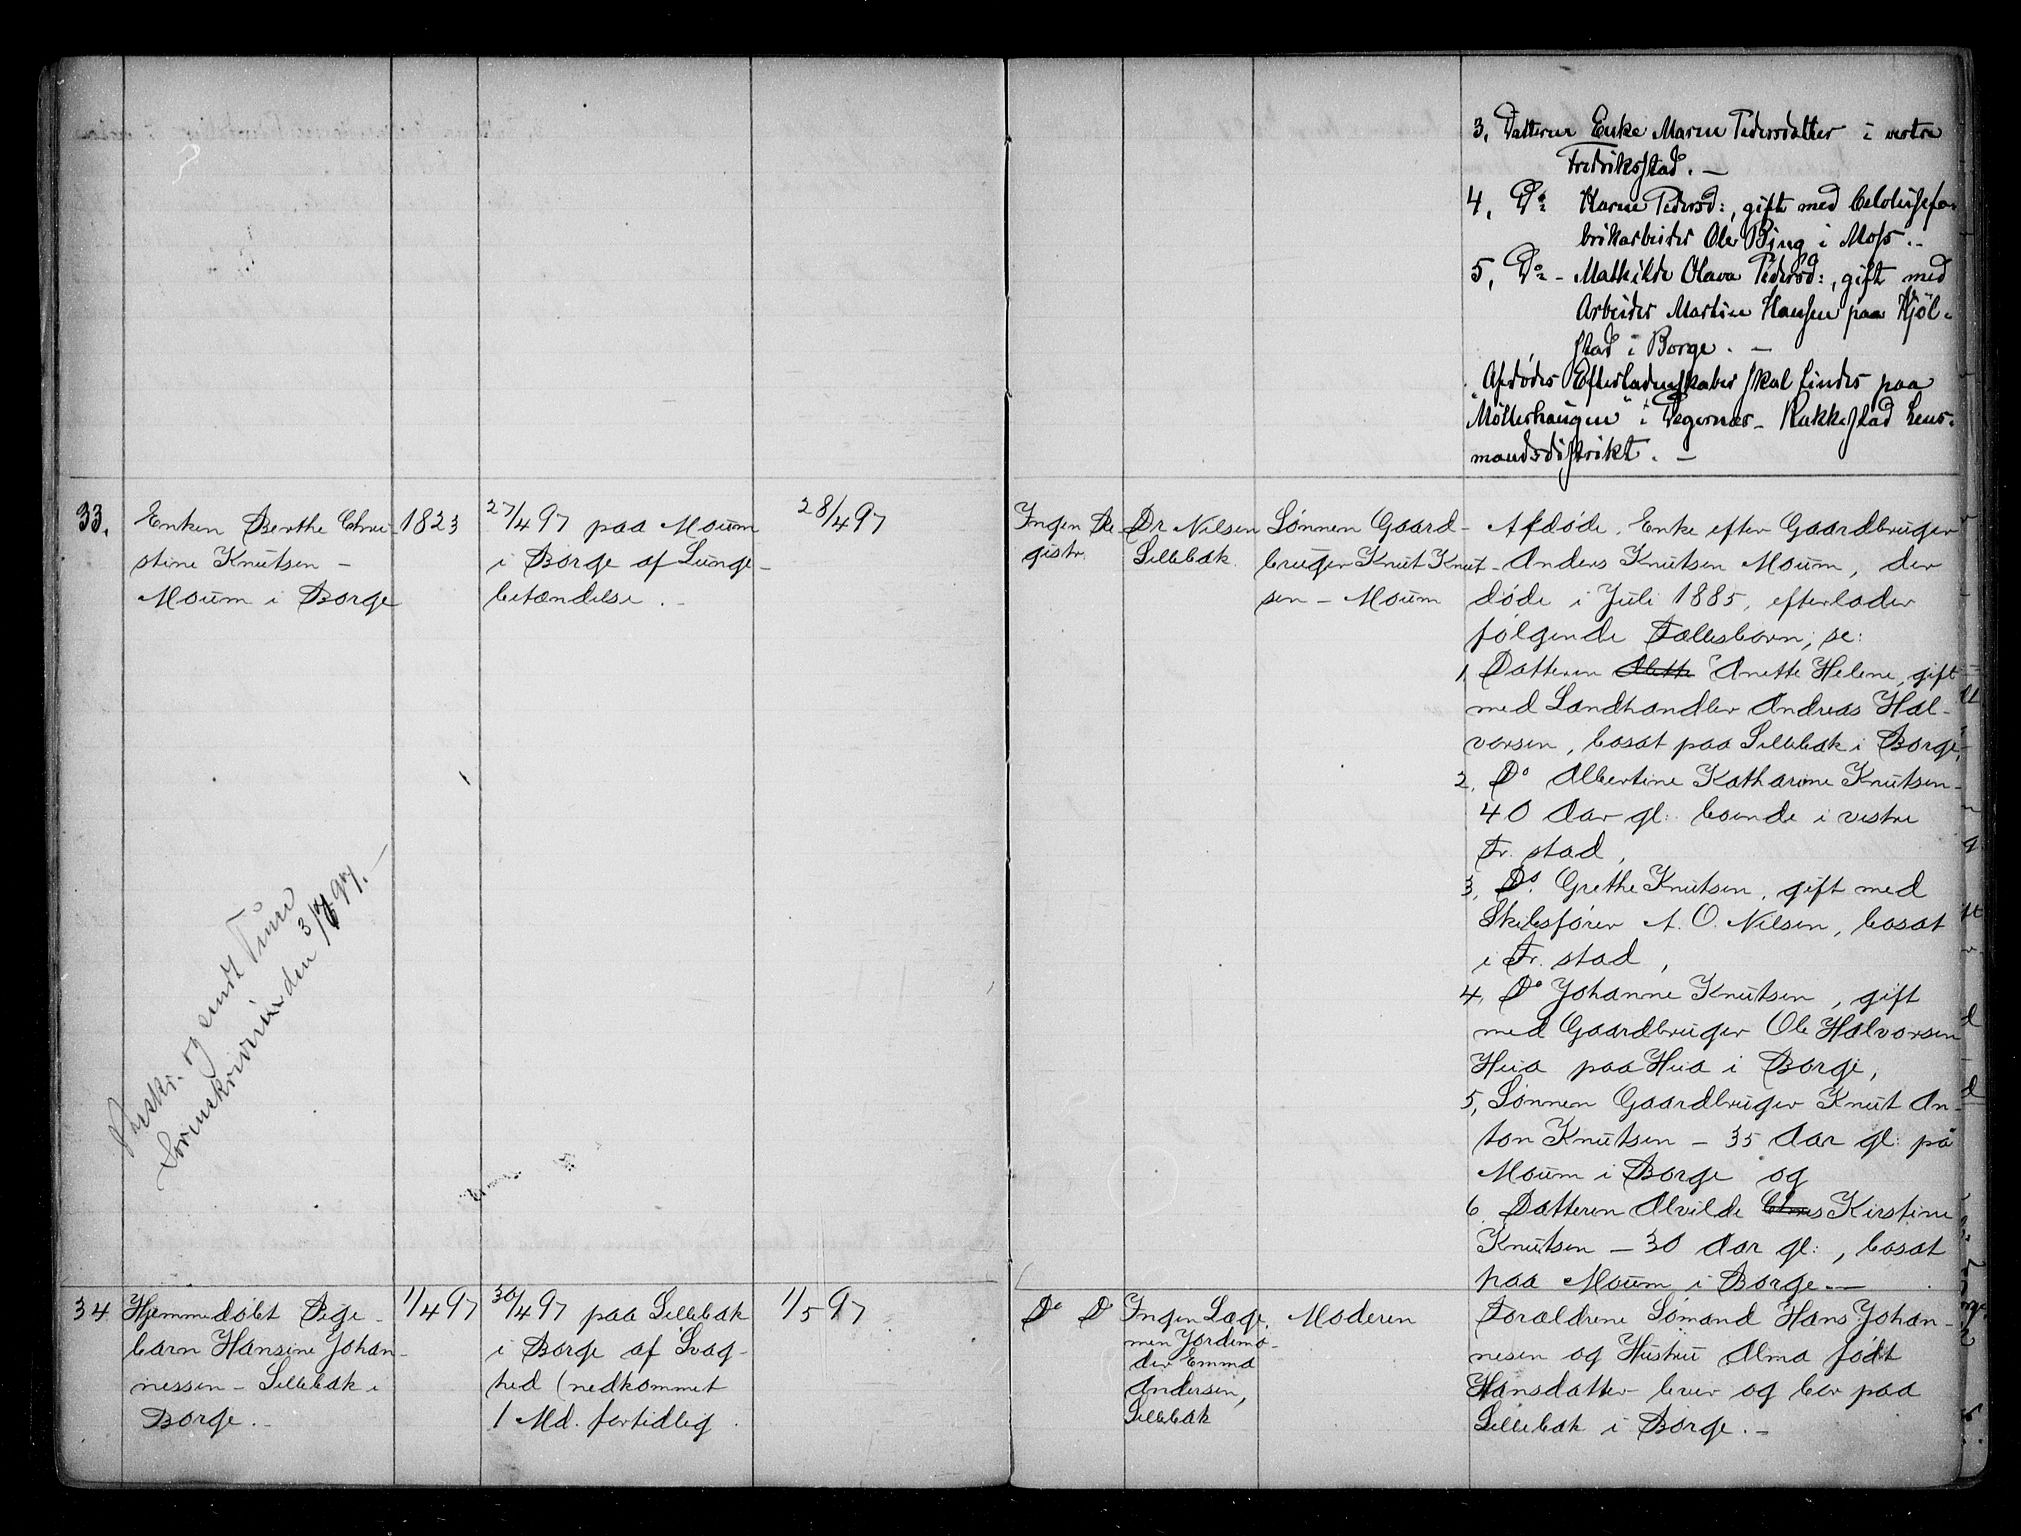 3, Datteren Enke Maren Pedersdatter i vestre
Fredriksstad. –
4, Do Karen Pedersd:, gift med Celolusefa-
brikarbeider Ole Bjng i Moss. –
5, Do – Mathilde Olava Pedersd:, gift med
Arbeider Martin Hansen paa Kjøl-
stad i Borge. –
Afdødes Efterladenskaber skal findes paa
"Møllerhaugen" i Degernæs – Rakkestad Lens-
mandsdistrikt. –
33.
Enken Berthe Chri-
stine Knutsen –
Moum i Borge
1823
27/4 97 paa Moum
i Borge af Lunge-
betændelse. –
28/4 97
Ingen Re-
gistr.
Dr Nilsen
Sellebak.
Sønnen Gaard-
bruger Knut Knut-
sen – Moum
Afdøde, Enke efter Gaardbruger
Anders Knutsen Moum, der
døde i Juli 1885, efterlader
følgende Fællesbørn, se:
1, Datteren Alette Anette Helene, gift
med Landhandler Andreas Hal-
vorsen, bosat paa Sellebak i Borge,
2, Do Albertine Katharine Knutsen
40 Aar gl: boende i vestre
Fr. stad,
3, Do. Grethe Knutsen, gift med
Skibsfører A. O. Nilsen, bosat
i Fr. stad,
4, Do Johanne Knutsen, gift
med Gaardbruger Ole Halvorsen
Hua paa Hua i Borge,
5, Sønnen Gaardbruger Knut An-
ton Knutsen – 35 Aar gl: på
Moum i Borge og
6. Datteren Alvilde Kirstine
Knutsen – 30 Aar gl:, bosat
paa Moum i Borge. –
Afskr. og sendt Tune
Sorenskriverien den 3/6 97. –
34
Hjemmedøbt Pige-
barn Hansine Johan-
nessen – Sellebak i
Borge. –
1/4 97
30/4 97 paa Sellebak
i Borge af Svag-
hed (nedkommet
1 Md. fortidlig
1/5 97
Do Do
Ingen Læge,
men Jordemo-
der Emma
Andersen,
Sellebak
Moderen
Forældrene Sømand Hans Johan-
nesen og Hustru Alma født
Hansdatter lever og bor paa
Sellebak i Borge. –